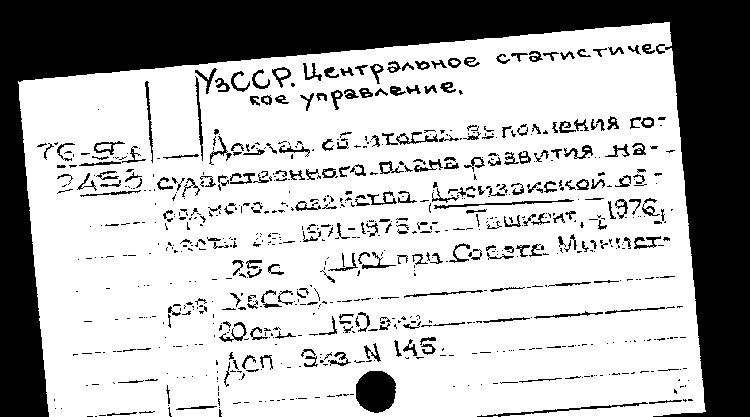 УзССР. Центральное статистичес-
кое управление.
Доклад об итогах выполнения го-
2453 сударственного плана развития на-
родного хозяйства Джизакской об-
ласти за 1971-1975 гг. Ташкент, [1976]
25 с (ЦСУ при Совете Минист-
ров УзССР).
20 см. 150 экз.
ДСП Экз N 145.